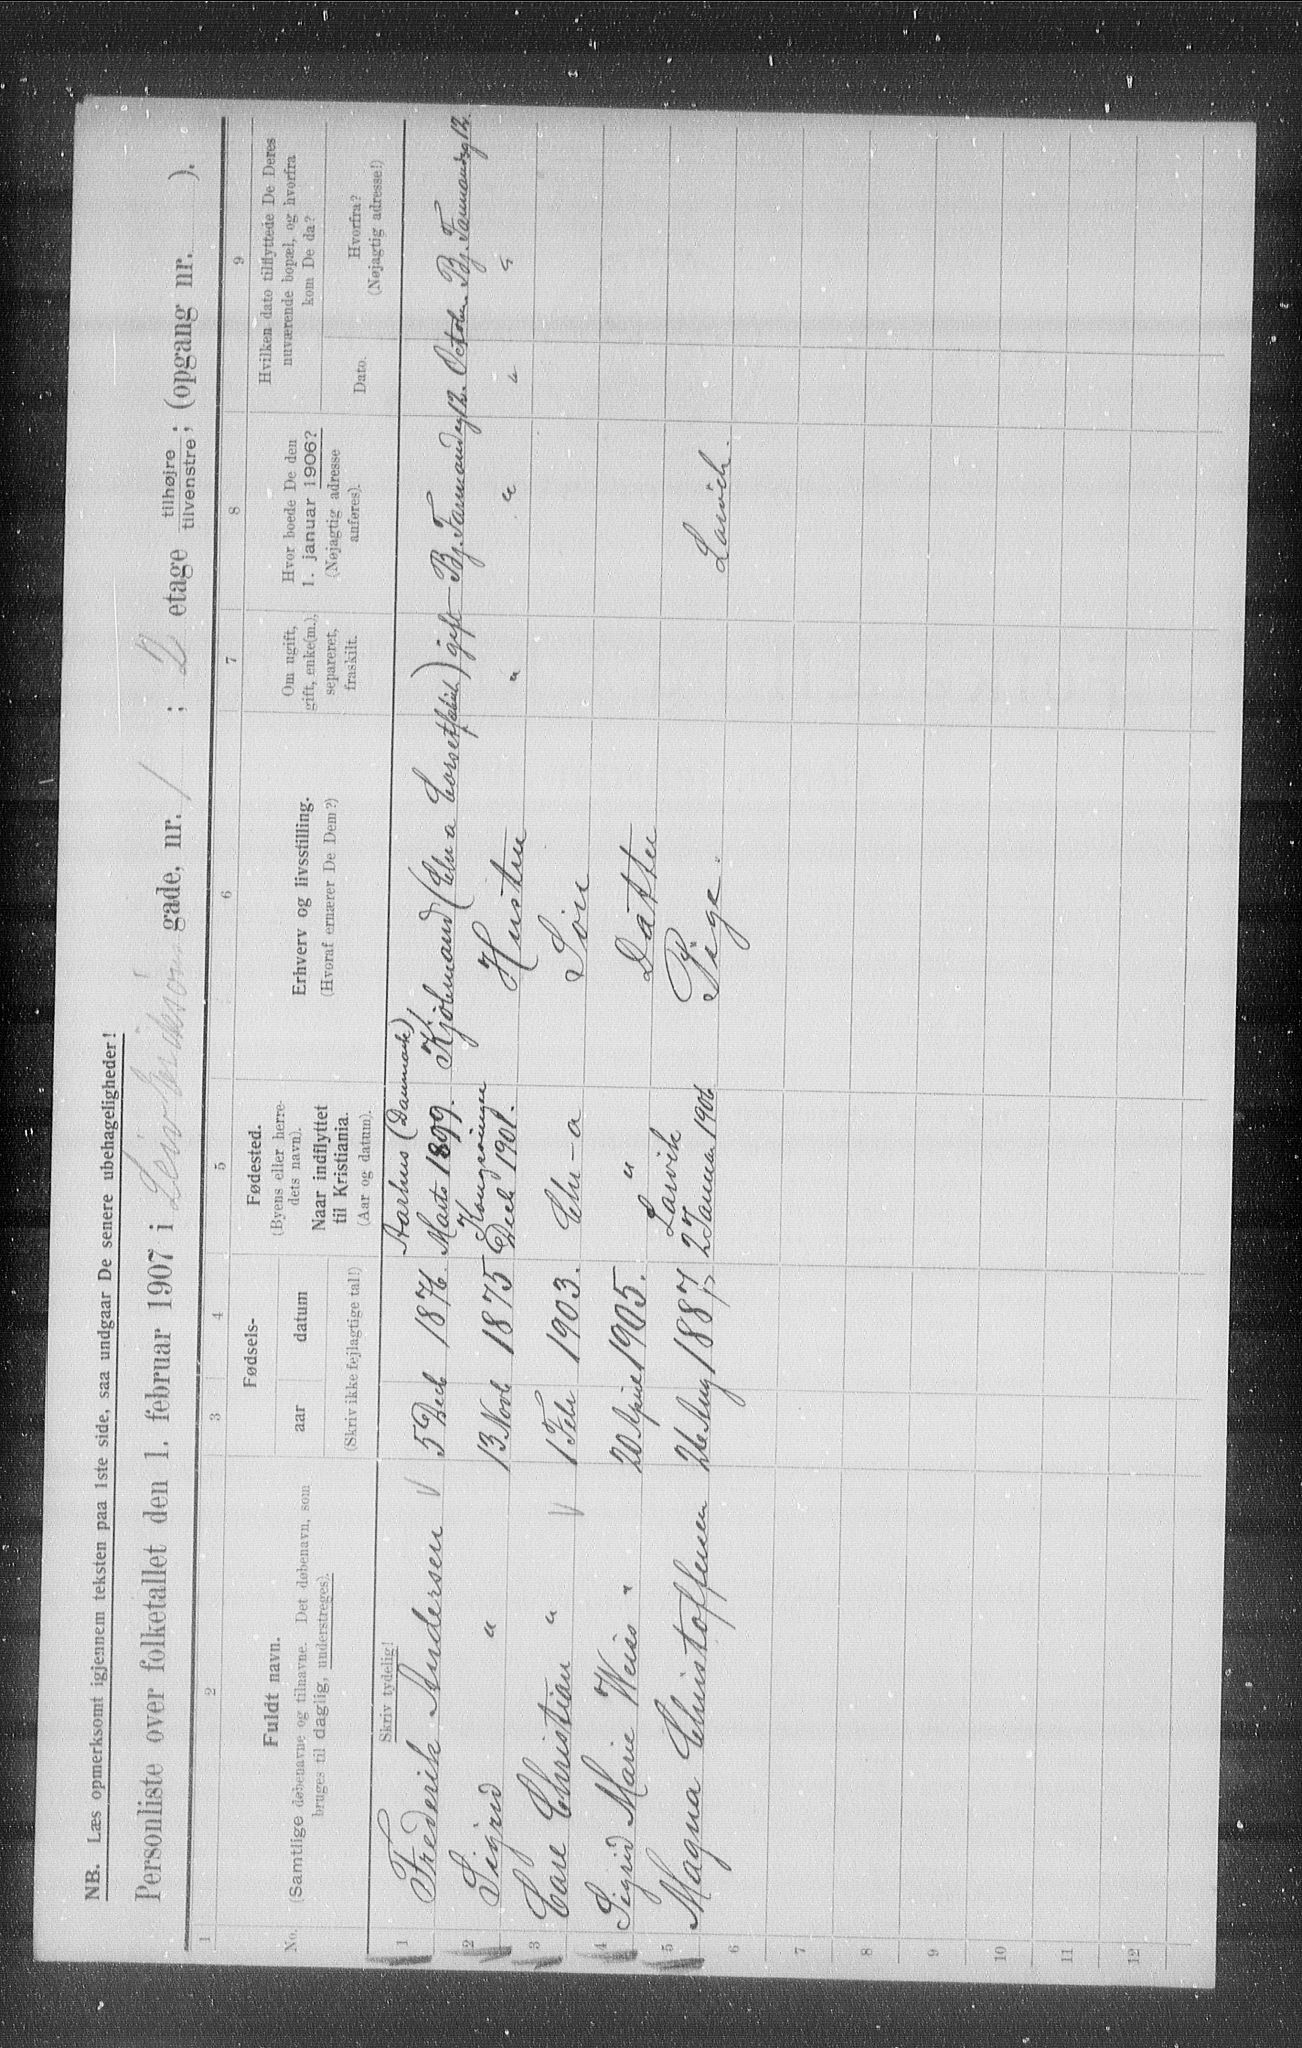 NB. Læs opmerksomt igjennem teksten paa 1ste side, saa undgaar De senere ubehageligheder!
Personliste over folketallet den 1. februar 1907 i Leiv Eriksøns gade, nr. 1 ; 2 etage tilhøjre tilvenstre; (opgang nr. ).
1 2 3 4 5 6 7 8 9
No.
Fuldt navn.
(Samtlige døbenavne og tilnavne. Det døbenavn, som
bruges til daglig, understreges).
Fødsels-
aar datum
(Skriv ikke fejlagtige tal!)
Fødested.
(Byens eller herre-
dets navn).
Naar indflyttet
til Kristiania.
(Aar og datum).
Erhverv og livsstilling.
(Hvoraf ernærer De Dem?)
Om ugift,
gift, enke(m.),
separeret,
fraskilt.
Hvor boede De den
1. januar 1906?
(Nøjagtig adresse
anføres).
Hvilken dato tilflyttede De Deres
nuværende bopæl, og hvorfra
kom De da?
Dato.
Hvorfra?
(Nøjagtig adresse!)
Skriv tydelig!
Aarhus (Danmark)
1 Frederik Andersen 5 Decb 1876. Marts 1899. Kjöbmand (Chr a Corsetfabrik) gift Bj. Farmandsg 12. October Bj. Farmandsg 12.
Kongsvinger
2 Sigrid " 13 Novb 1875 Decb 1901. Hustru " " " "
3 Care Christian " 1 Feb 1903. Chr-a Sön
4 Sigrid Marie Weiss " 20 April 1905. " Datter
Larvik
5 Magna Christoffersen 26 Aug 1887 27 Januar 1906 Pige. Larvik.
6
7
8
9
10
11
12